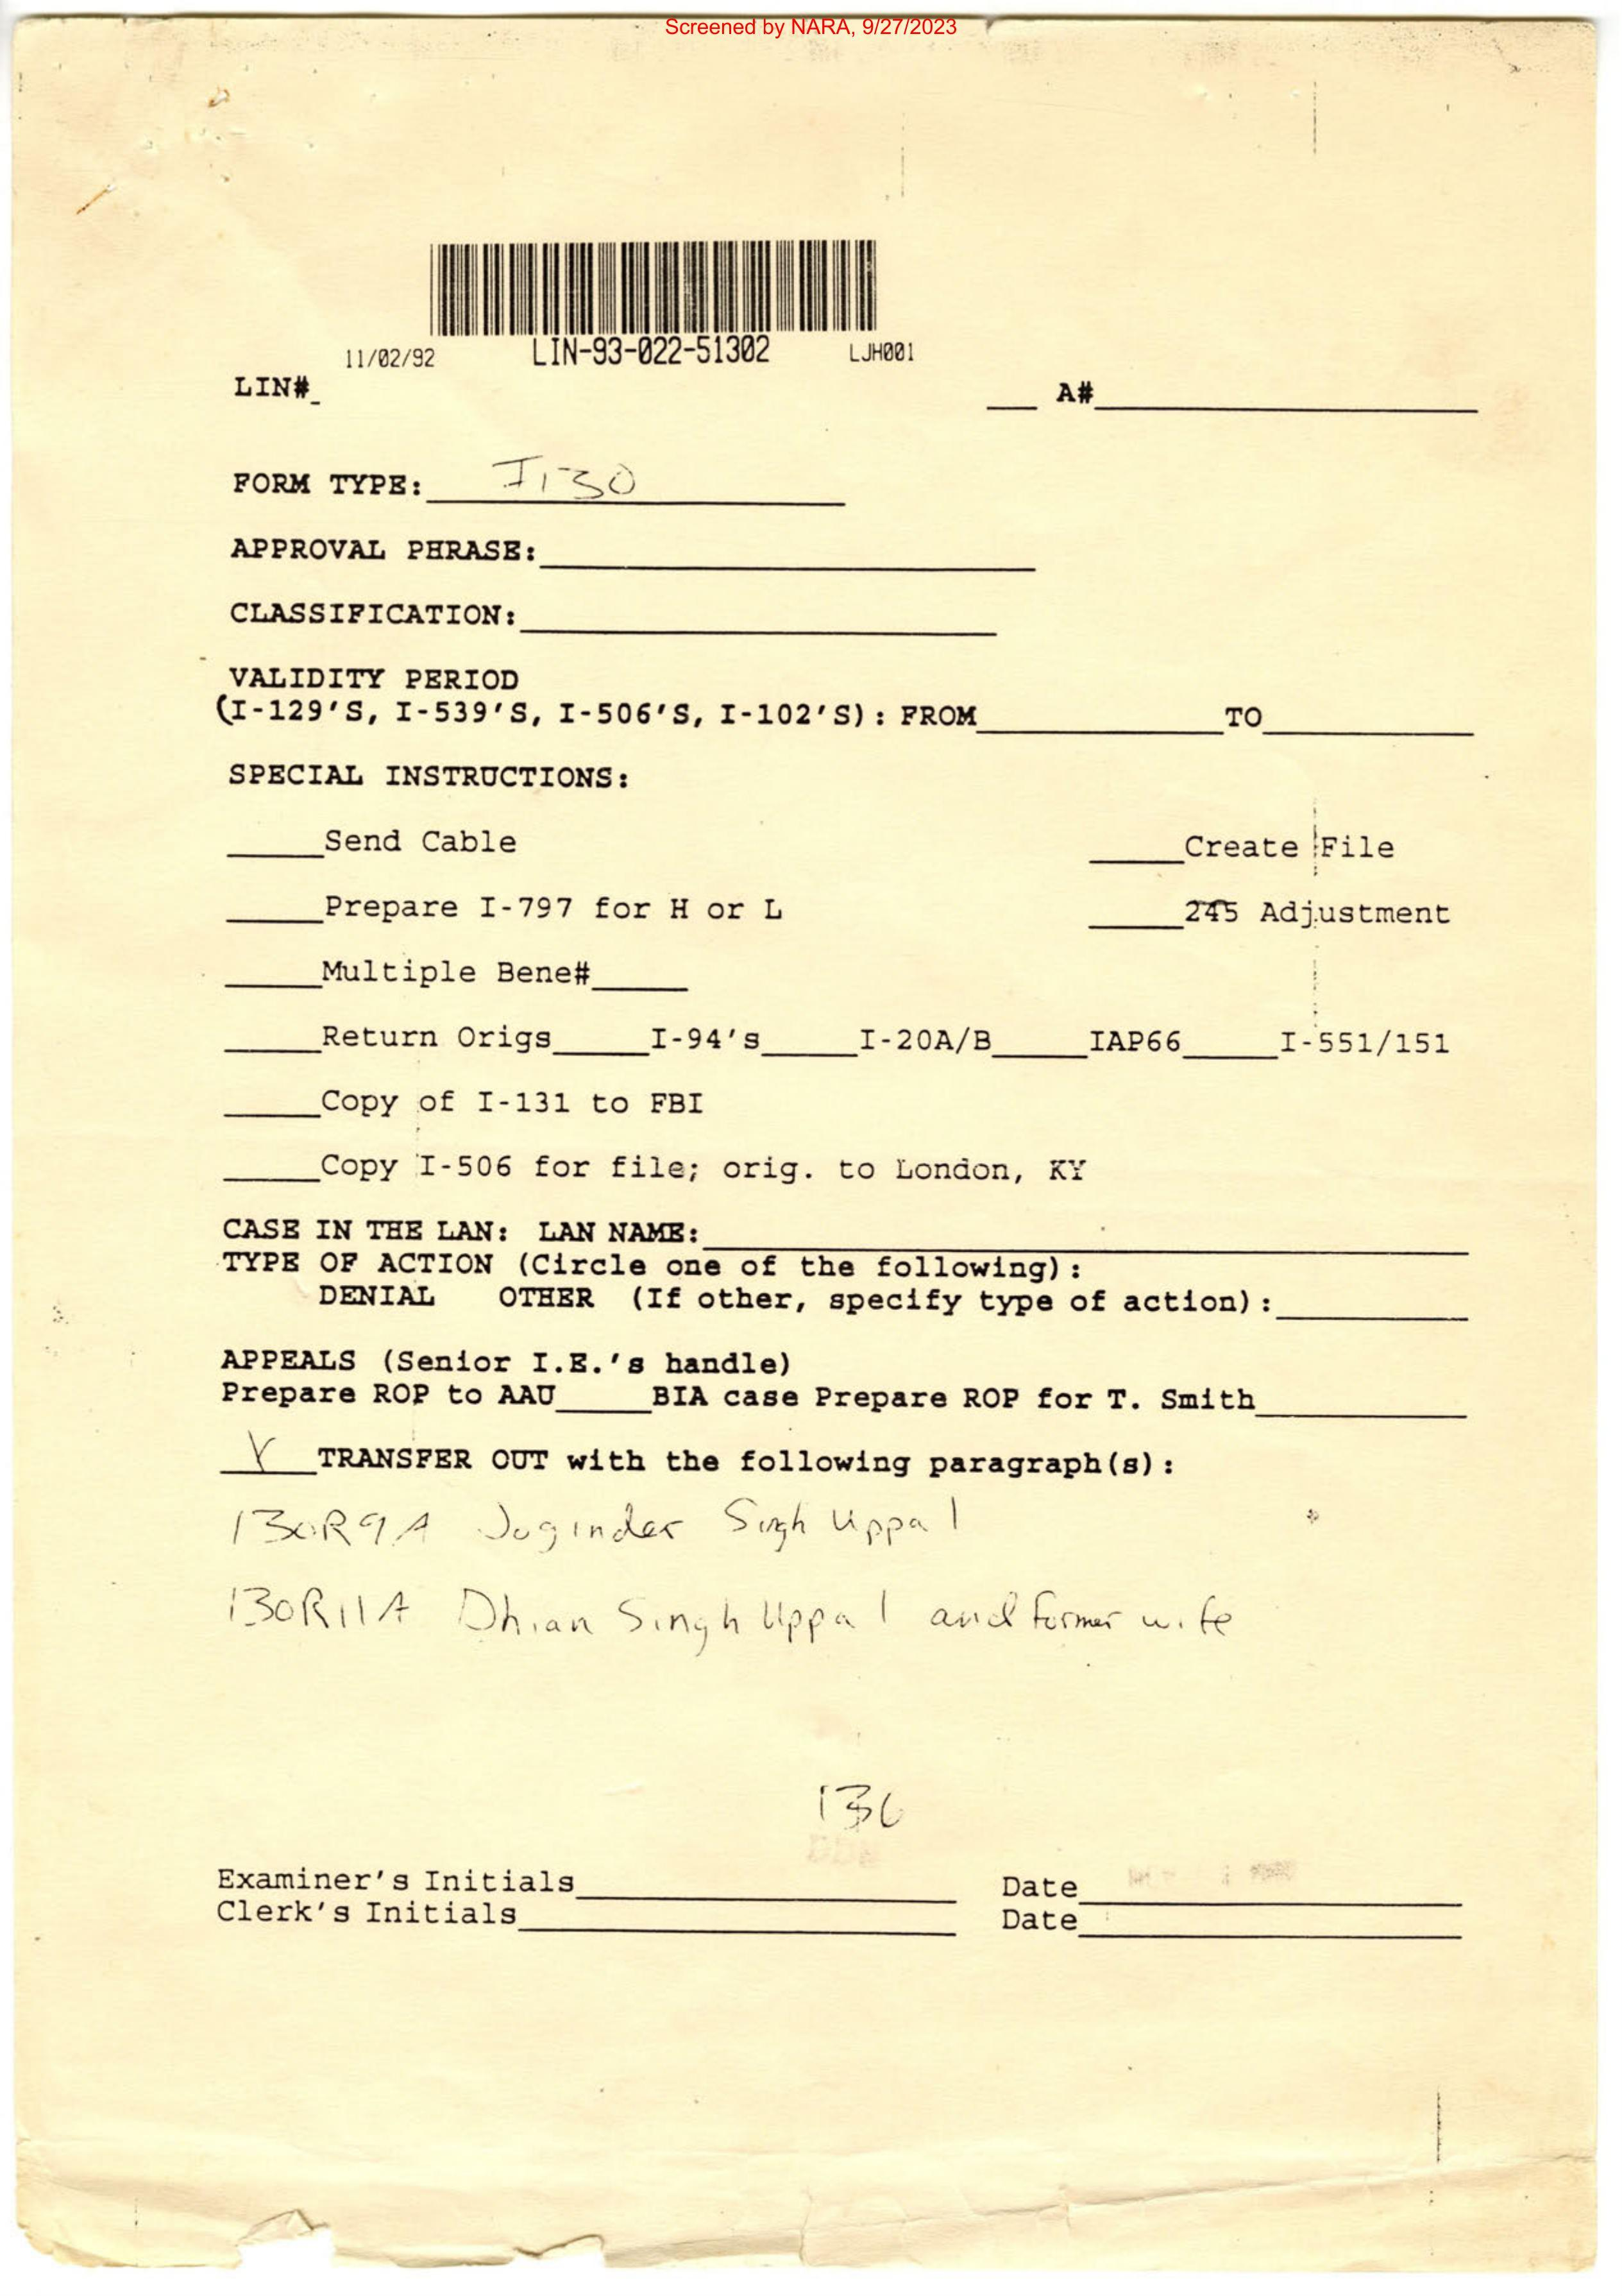 Screened by NARA, 9/27/2023
11/02/92 LIN-93-022-51302 LJH001
LIN#_ ___ A#____________
FORM TYPE: I130
APPROVAL PHRASE:____________
CLASSIFICATION:____________
VALIDITY PERIOD
(I-129'S, I-539'S, I-506'S, I-102'S): FROM________TO________
SPECIAL INSTRUCTIONS:
_____Send Cable _____Create File
_____Prepare I-797 for H or L _____245 Adjustment
_____Multiple Bene#_____
_____Return Origs_____I-94's_____I-20A/B_____IAP66_____I-551/151
_____Copy of I-131 to FBI
_____Copy I-506 for file; orig. to London, KY
CASE IN THE LAN: LAN NAME:____________
TYPE OF ACTION (Circle one of the following):
DENIAL OTHER (If other, specify type of action):________
APPEALS (Senior I.E.'s handle)
Prepare ROP to AAU_____BIA case Prepare ROP for T. Smith________
TRANSFER OUT with the following paragraph(s):
130R9A Joginder Singh Uppal
130R11A Dhian Singh Uppal and former wife
Examiner's Initials____________ Date____________
Clerk's Initials____________ Date____________